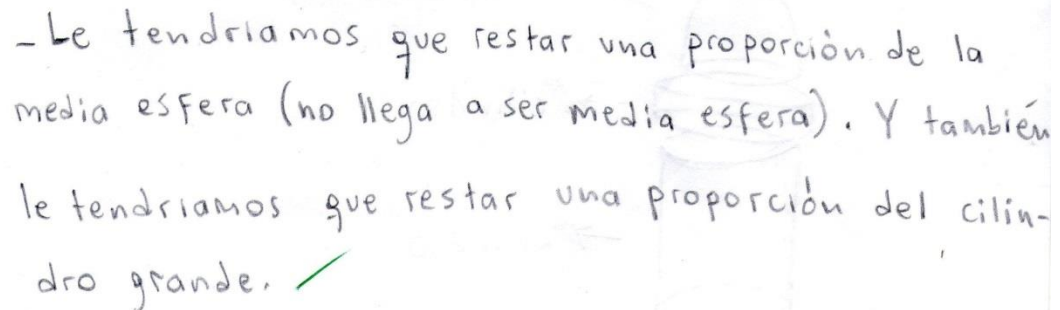 - Le tendriamos que restar una proporción de la
media esfera (no llega a ser media esfera). Y también
le tendriamos que restar una proporción del cilin-
dro grande.